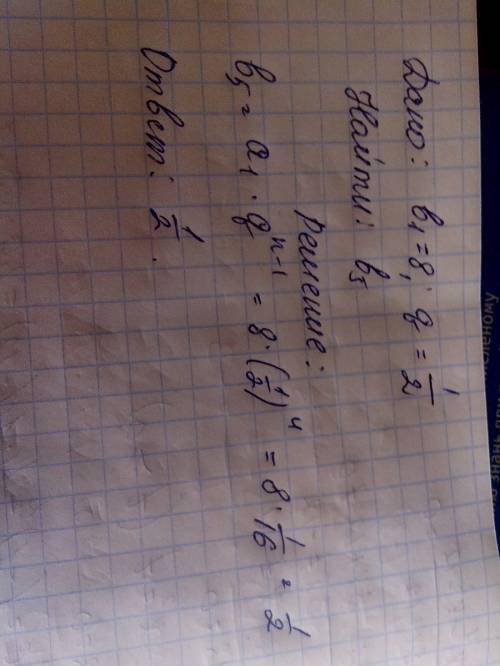 Дано: b₁=8; q = 1/2
Найти: b₅
Решение:
b₅ = a₁ · q^(n-1) = 8 · (1/2)^4 = 8 · 1/16 = 1/2
Ответ: 1/2.